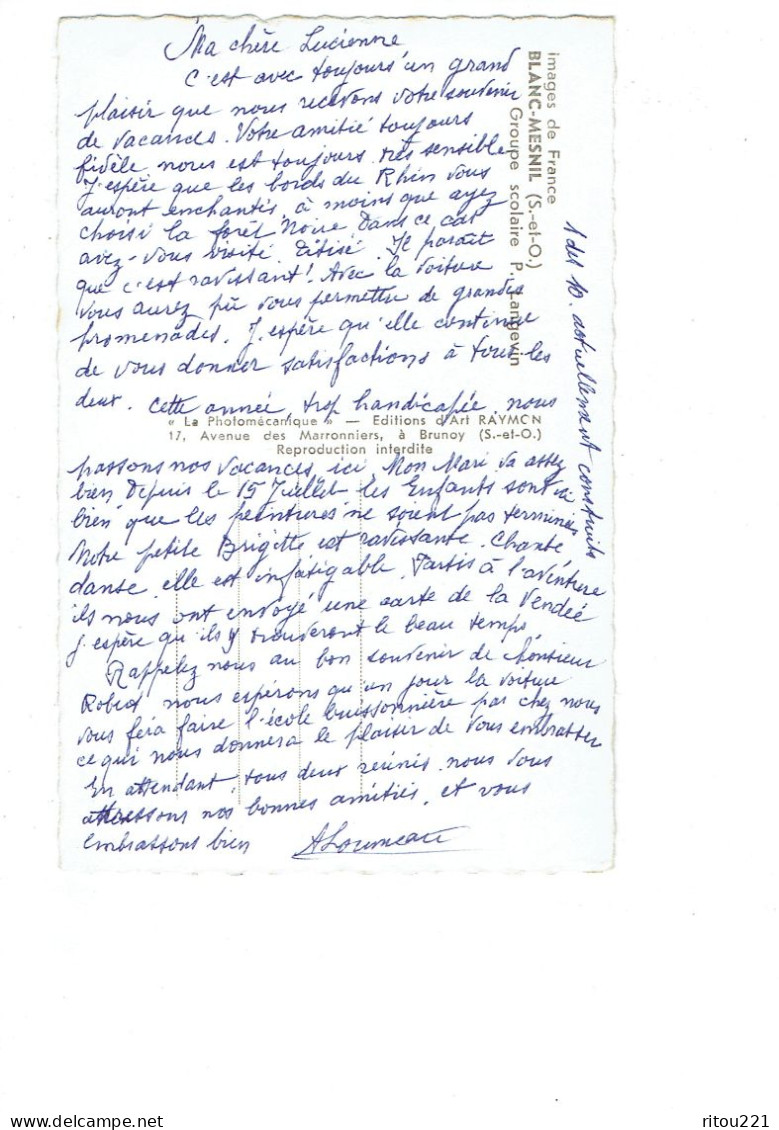 Ma chère Lucienne,
C'est avec toujours un grand
plaisir que nous recevons votre souvenir
de vacances. Votre amitié toujours
fidèle nous est toujours très sensible
J'espère que les bords du Rhin vous
auront enchantés, à moins que ayez
choisi la forêt Noire. Dans ce cas
avez-vous visité Titisé. Il paraît
que c'est ravissant! Avec la voiture
vous aurez pu vous permettre de grandes
promenades. J'espère qu'elle continue
de vous donner satisfactions à tous les
deux. Cette année, trop handicapée, nous
passons nos vacances ici. Mon Mari va assez
bien. Depuis le 15 Juillet les Enfants sont ici
bien que les peintures ne soient pas terminées
Notre petite Brigitte est ravissante. Chante
danse, elle est infatigable. Partis à l'aventure
ils nous ont envoyé une carte de la Vendée
J'espère qu'ils y trouveront le beau temps,
Rappelez nous au bon souvenir de Monsieur
nous espérons qu'un jour la voiture
vous fera faire l'école buissonnière par chez nous
ce qui nous donnera le plaisir de vous embrasser
En attendant, tous deux réunis nous vous
adressons nos bonnes amitiés, et vous
embrassons bien
images de France
BLANC-MESNIL (S.-et-O.)
Groupe scolaire P. Langevin
1 des 10. actuellement construits
« La Photomécanique » — Editions d'Art RAYMON
17, Avenue des Marronniers, à Brunoy (S.-et-O.)
Reproduction interdite
ritou221